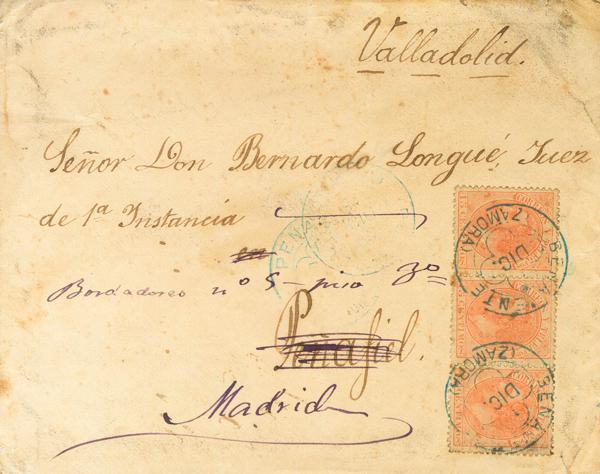 Valladolid.
Señor Don Bernardo Longué, Juez
de 1ª Instancia
en
Bordadores nº 5 - piso 3º
Peñafiel.
Madrid
BENAVENTE
(ZAMORA)
DIC.
BENA
(ZAMORA)
DIC.
PEÑA